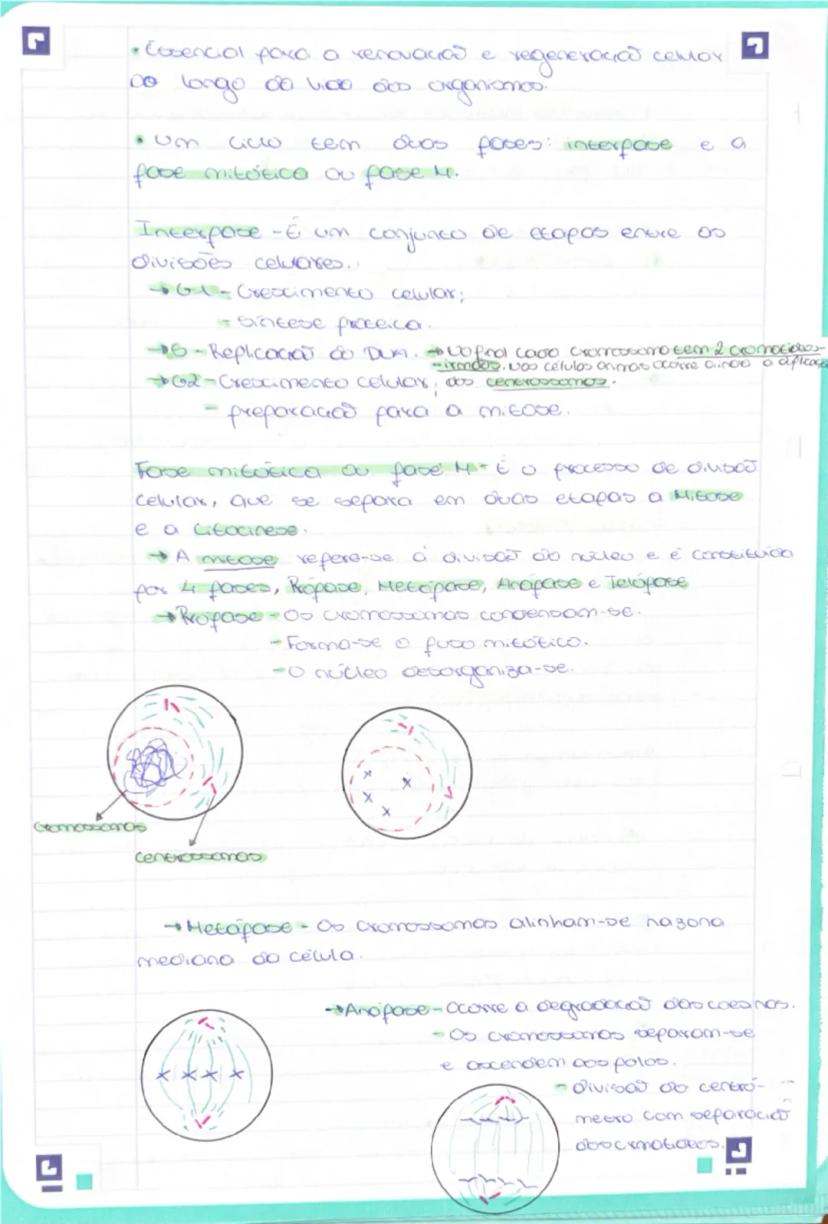 • Essencial para a renovação e regeneração celular
ao longo da vida dos organismos.
• Um ciclo tem duas fases: interfase e a
fase mitótica ou fase M.
Interfase - É um conjunto de etapas entre as
divisões celulares.
→ G1 - Crescimento celular;
- Síntese proteica.
→ S - Replicação do DNA. → No final cada cromossoma tem 2 cromatídeos-
-irmãos. Nas células animais ocorre ainda a
→ G2 - Crescimento celular; dos centrossomas.
- preparação para a mitose.
Fase mitótica ou fase M - É o processo de divisão
celular, que se separa em duas etapas a Mitose
e a Citocinese.
→ A mitose refere-se à divisão do núcleo e é constituída
por 4 fases, Prófase, Metáfase, Anáfase e Telófase
→ Prófase - Os cromossomas condensam-se.
- Forma-se o fuso mitótico.
- O núcleo desorganiza-se.
cromossomas
centrossomas
→ Metáfase - Os cromossomas alinham-se na zona
mediana da célula.
→ Anáfase - Ocorre a degradação das coesinas.
- Os cromossomas separam-se
e ascendem aos polos.
- divisão do centró-
mero com separação
dos cromatídeos.